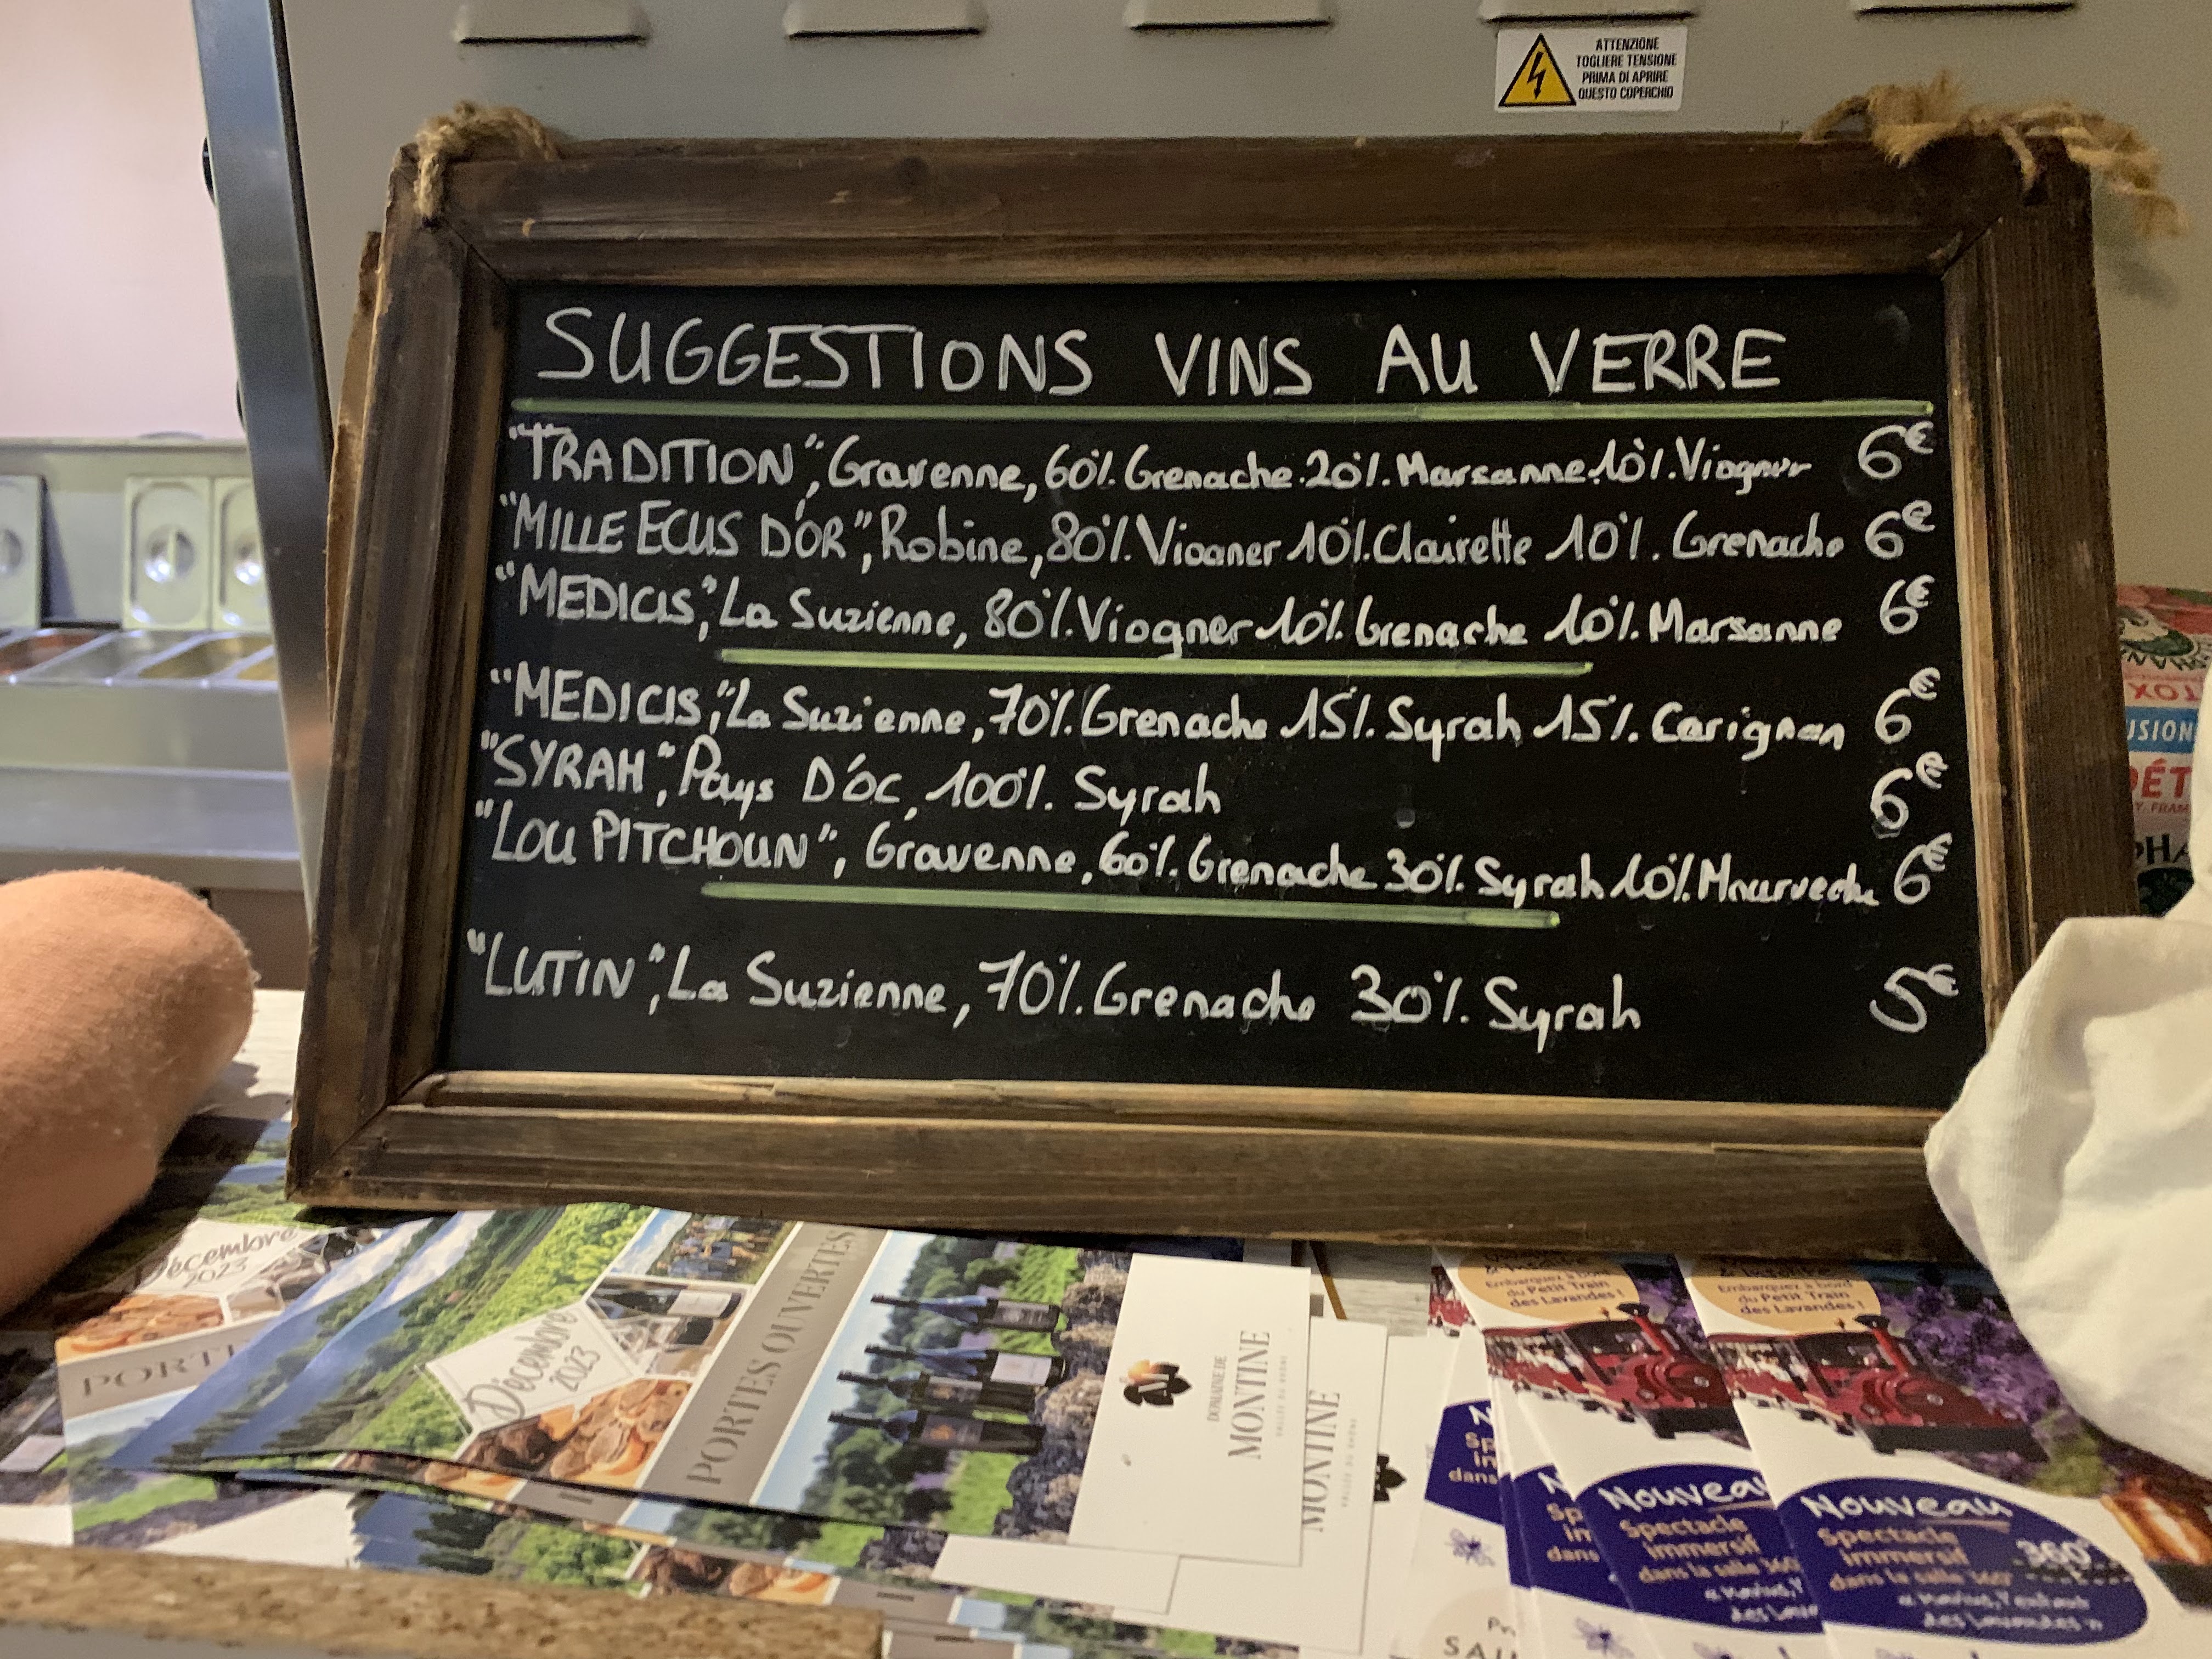 ATTENZIONE
TOGLIERE TENSIONE
PRIMA DI APRIRE
QUESTO COPERCHIO
SUGGESTIONS VINS AU VERRE
"TRADITION", Gravenne, 60% Grenache 20% Marsanne 10% Viogner 6€
"MILLE ECUS D'OR", Robine, 80% Viogner 10% Clairette 10% Grenache 6€
"MEDICIS", La Suzienne, 80% Viogner 10% Grenache 10% Marsanne 6€
"MEDICIS", La Suzienne, 70% Grenache 15% Syrah 15% Carignan 6€
"SYRAH", Pays D'OC, 100% Syrah 6€
"LOU PITCHOUN", Gravenne, 60% Grenache 30% Syrah 10% Mourvedre 6€
"LUTIN", La Suzienne, 70% Grenache 30% Syrah 5€
Décembre
2023
PORT
Décembre
2023
PORTES OUVERTES
DOMAINE DE
MONTINE
VALLÉE DU RHÔNE
MONTINE
VALLÉE DU RHÔNE
Embarquez à bord
du Petit Train
des Lavandes !
Embarquez à bord
du Petit Train
des Lavandes !
Nouveau
Spectacle
immersif
dans la salle 360°
Nouveau
Spectacle
immersif
dans la salle 360°
360°